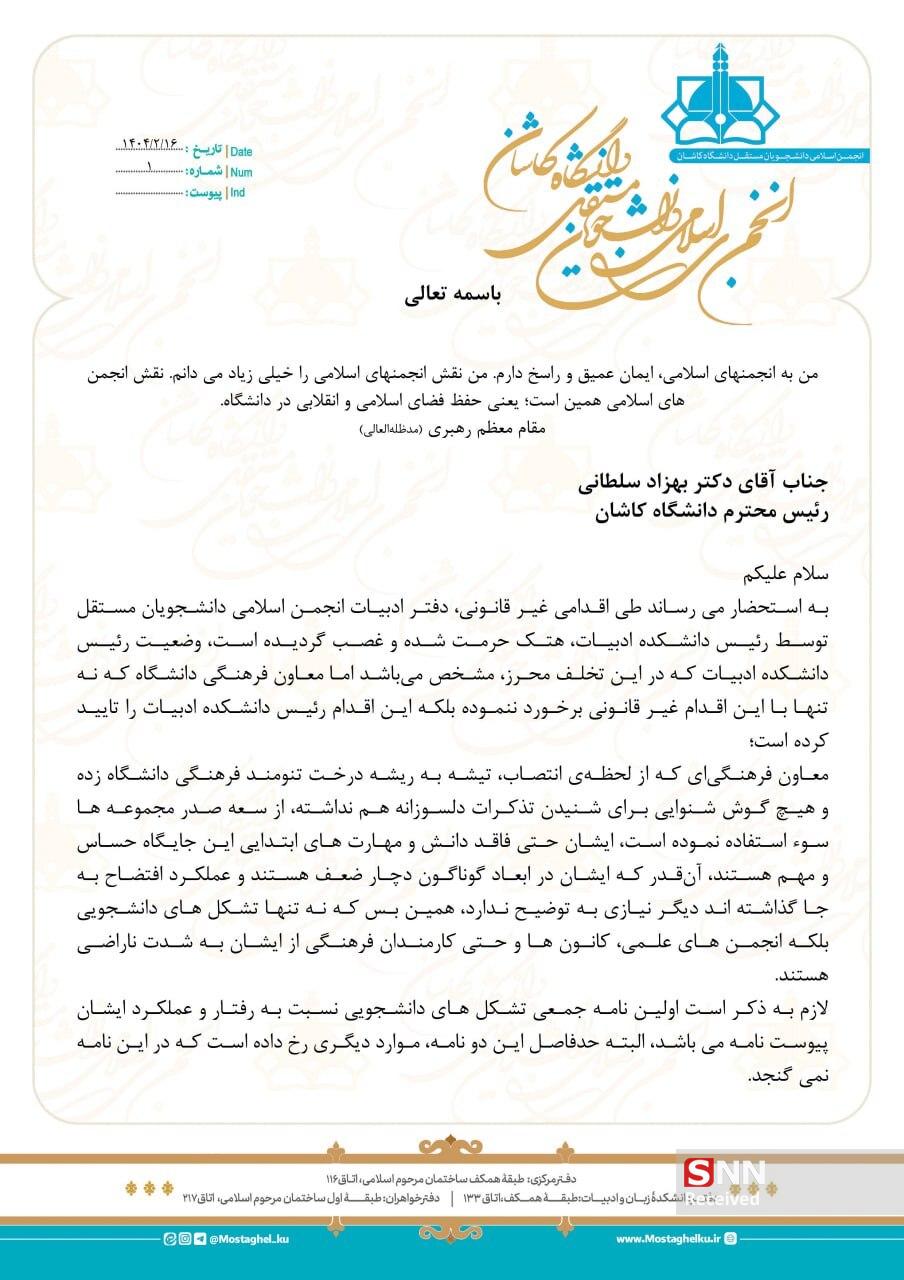 انجمن اسلامی دانشجویان مستقل دانشگاه کاشان
انجمن اسلامی دانشجویان مستقل دانشگاه کاشان
Date | تاریخ : ۱۴۰۴/۲/۱۶
Num | شماره: ۱
Ind | پیوست:
باسمه تعالی
من به انجمنهای اسلامی، ایمان عمیق و راسخ دارم. من نقش انجمنهای اسلامی را خیلی زیاد می دانم. نقش انجمن
های اسلامی همین است؛ یعنی حفظ فضای اسلامی و انقلابی در دانشگاه.
مقام معظم رهبری (مدظله‌العالی)
جناب آقای دکتر بهزاد سلطانی
رئیس محترم دانشگاه کاشان
سلام علیکم
به استحضار می رساند طی اقدامی غیر قانونی، دفتر ادبیات انجمن اسلامی دانشجویان مستقل
توسط رئیس دانشکده ادبیات، هتک حرمت شده و غصب گردیده است، وضعیت رئیس
دانشکده ادبیات که در این تخلف محرز، مشخص می‌باشد اما معاون فرهنگی دانشگاه که نه
تنها با این اقدام غیر قانونی برخورد ننموده بلکه این اقدام رئیس دانشکده ادبیات را تایید
کرده است؛
معاون فرهنگی‌ای که از لحظه‌ی انتصاب، تیشه به ریشه درخت تنومند فرهنگی دانشگاه زده
و هیچ گوش شنوایی برای شنیدن تذکرات دلسوزانه هم نداشته، از سعه صدر مجموعه ها
سوء استفاده نموده است، ایشان حتی فاقد دانش و مهارت های ابتدایی این جایگاه حساس
و مهم هستند، آن‌قدر که ایشان در ابعاد گوناگون دچار ضعف هستند و عملکرد افتضاح به
جا گذاشته اند دیگر نیازی به توضیح ندارد، همین بس که نه تنها تشکل های دانشجویی
بلکه انجمن های علمی، کانون ها و حتی کارمندان فرهنگی از ایشان به شدت ناراضی
هستند.
لازم به ذکر است اولین نامه جمعی تشکل های دانشجویی نسبت به رفتار و عملکرد ایشان
پیوست نامه می باشد، البته حدفاصل این دو نامه، موارد دیگری رخ داده است که در این نامه
نمی گنجد.
دفترمرکزی: طبقۀ همکف ساختمان مرحوم اسلامی،اتاق۱۱۶
دانشکدۀ زبان و ادبیات:طبقۀ همکف،اتاق۱۳۳ | دفترخواهران:طبقۀ اول ساختمان مرحوم اسلامی، اتاق۲۱۷
SNN
Received
@Mostaghel_ku
www.Mostaghelku.ir